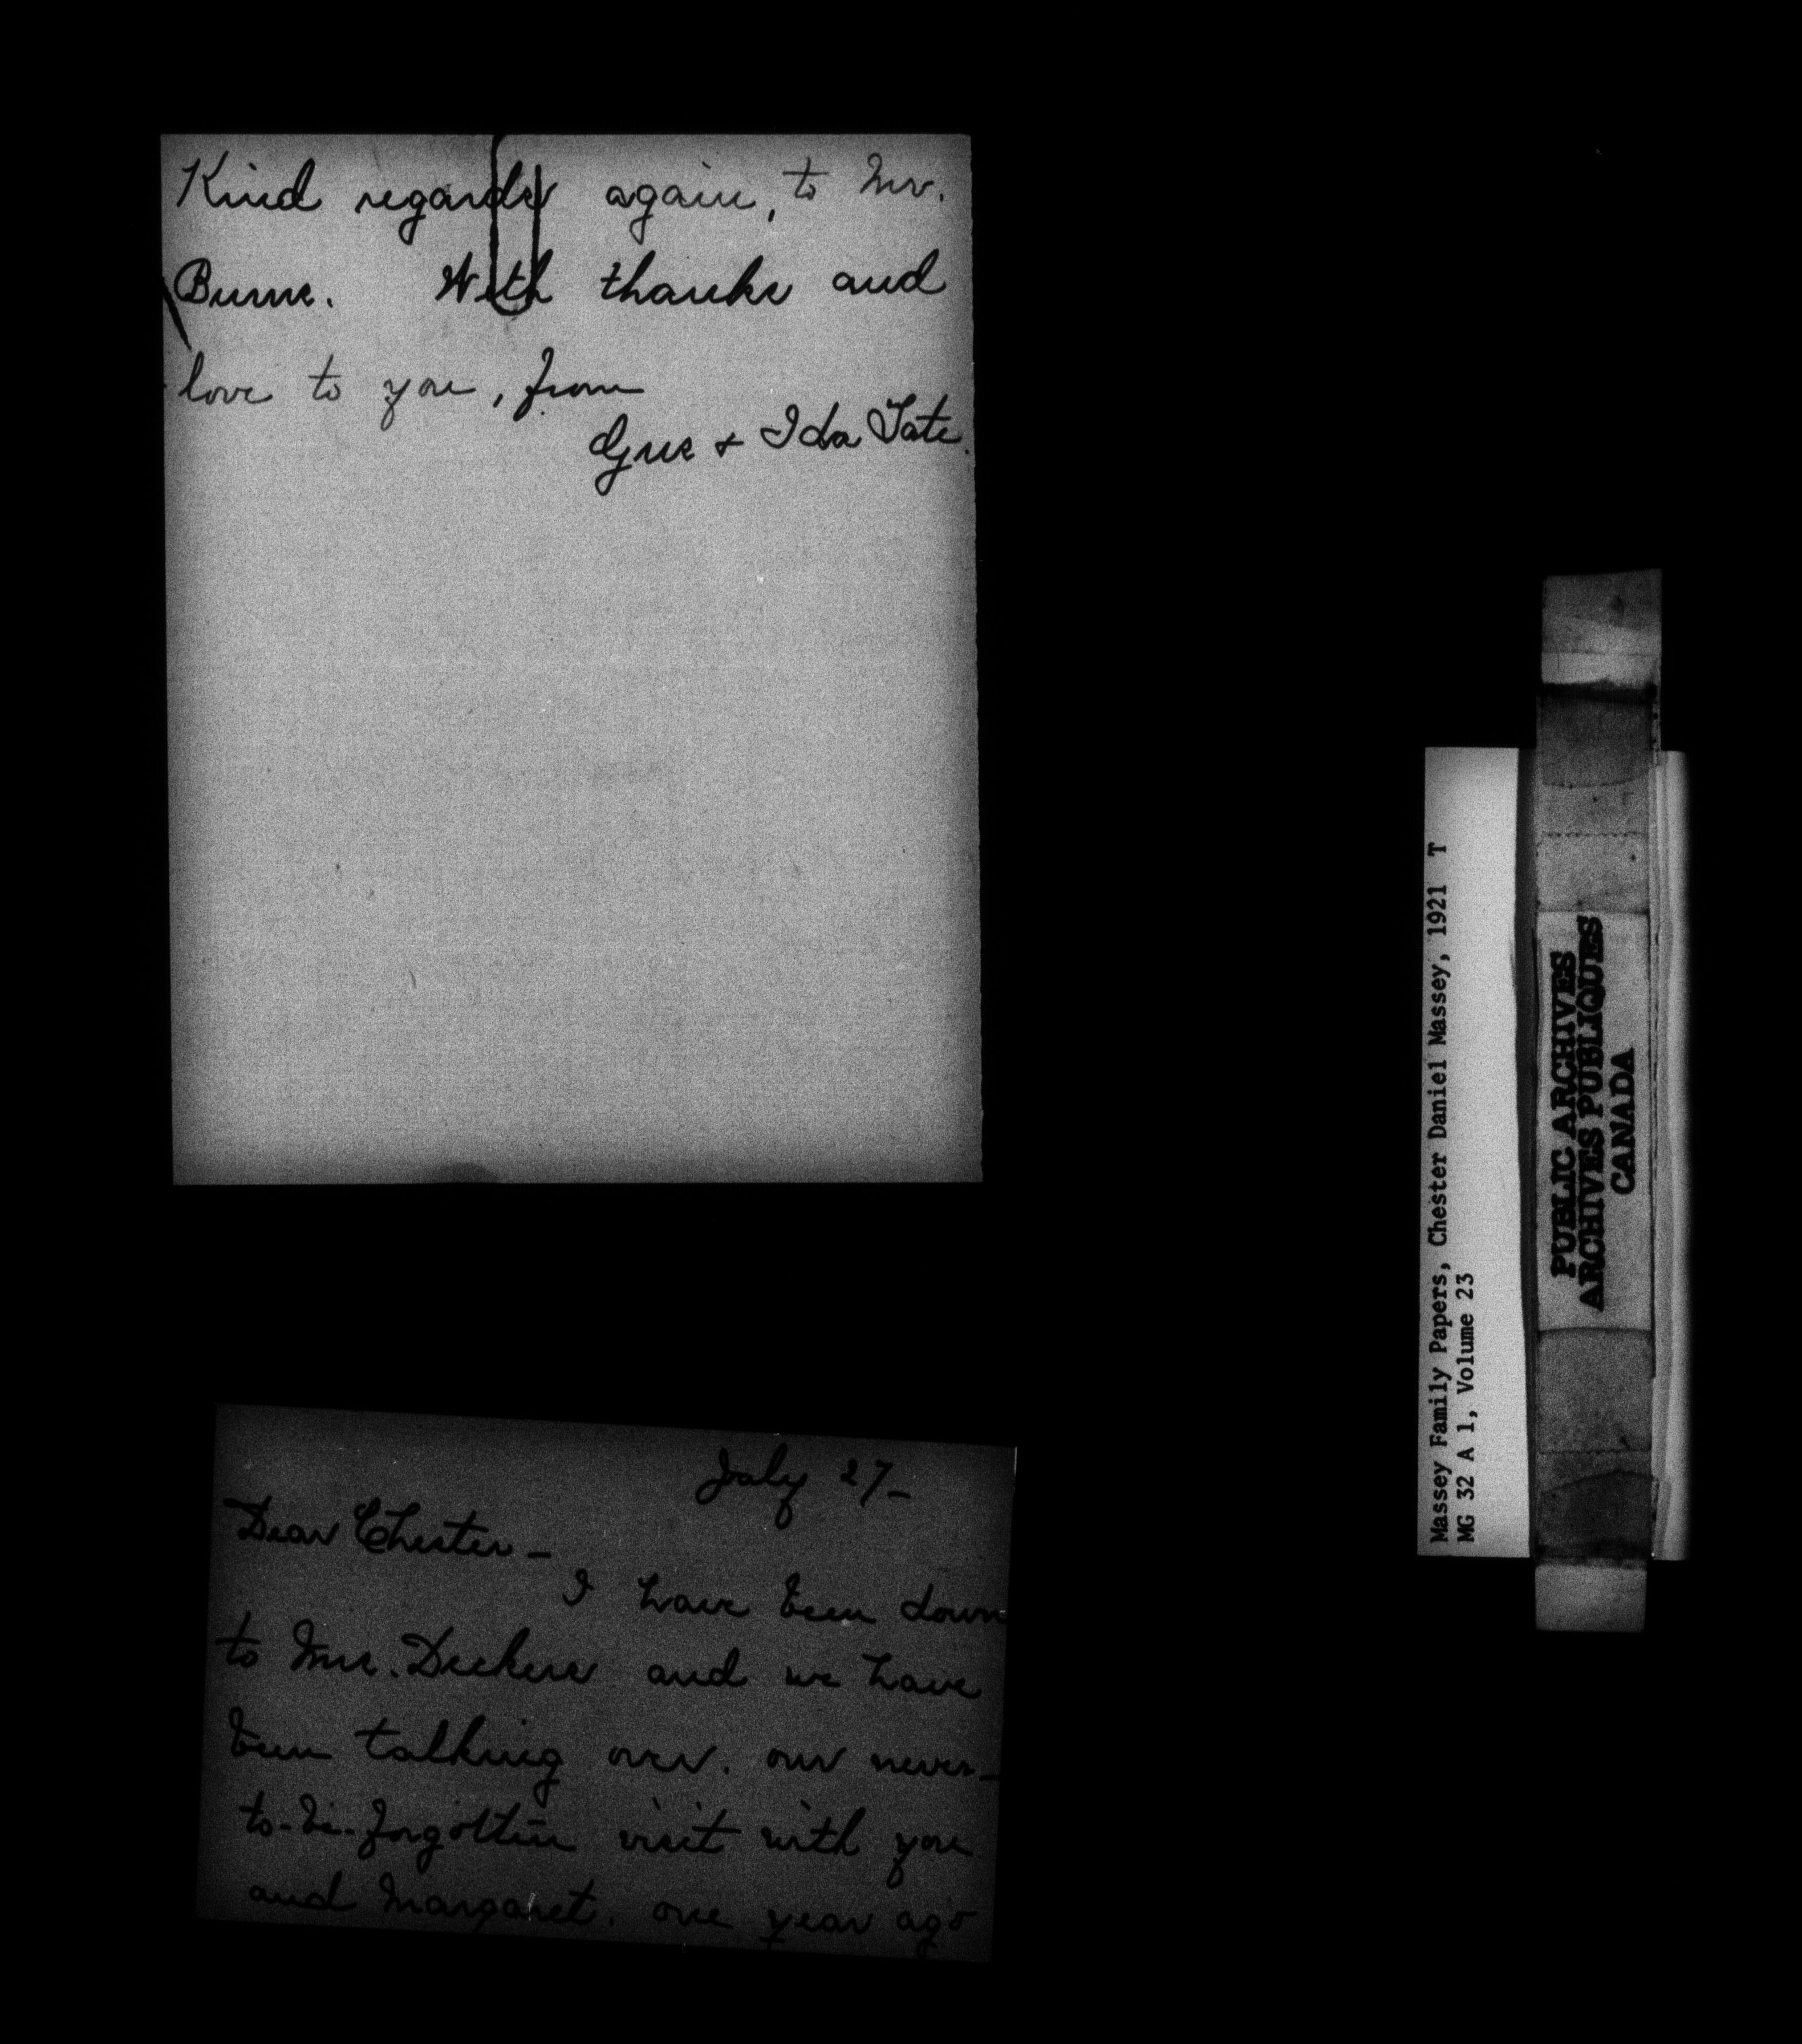 Kind regards again, to Mr.
Burns. With thanks and
love to you, from
Gus & Ida Tate.
July 27 —
Dear Chester —
I have been down
to Mrs. Deckers and we have
been talking over. our never-
to-be-forgotten visit with you
and Margaret. one year ago
Massey Family Papers, Chester Daniel Massey, 1921 T
MG 32 A 1, Volume 23
PUBLIC ARCHIVES
ARCHIVES PUBLIQUES
CANADA